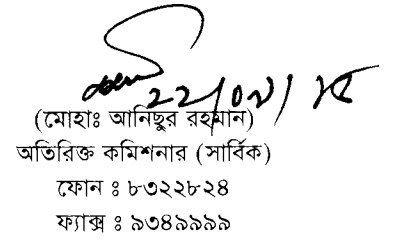 (মোহাঃ আনিছুর রহমান)
অতিরিক্ত কমিশনার (সার্বিক)
ফোন ঃ ৮৩২২৮২৪
ফ্যাক্স ঃ ৯৩৪৯৯৯৯